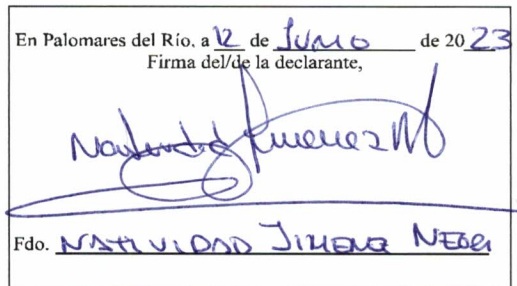 En Palomares del Río, a 12 de Junio de 2023
Firma del/de la declarante,
Natividad Jimenez N
Fdo. NATIVIDAD JIMENEZ